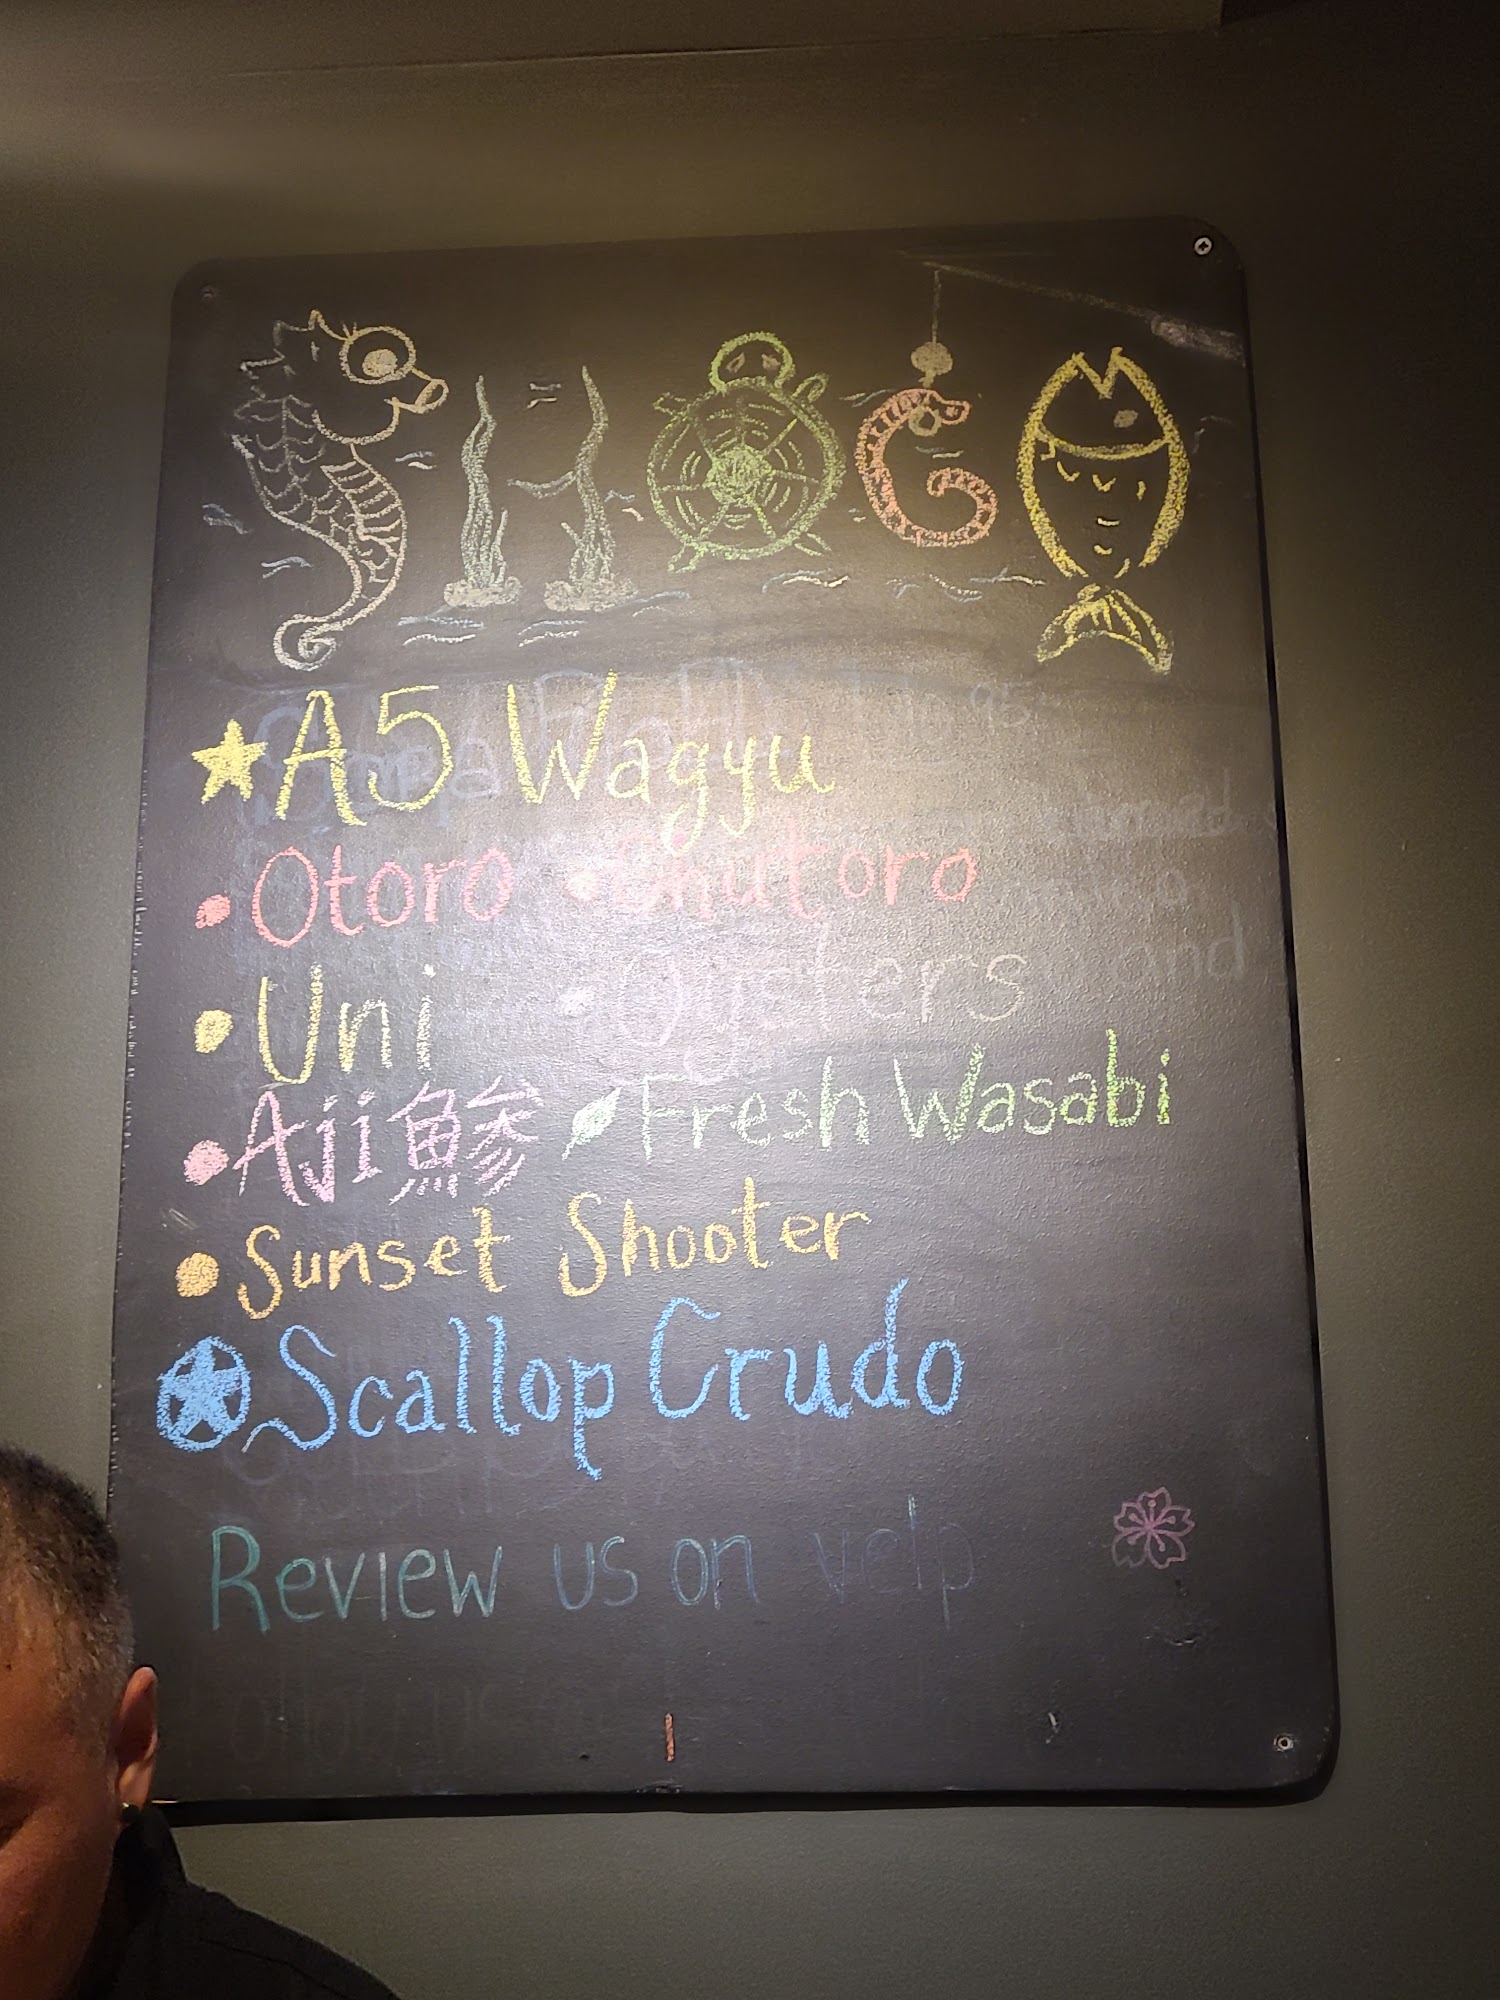 SHOGO
A5 Wagyu
Otoro • Chutoro
Uni • Oysters
Aji鯵 Fresh Wasabi
Sunset Shooter
Scallop Crudo
Review us on yelp